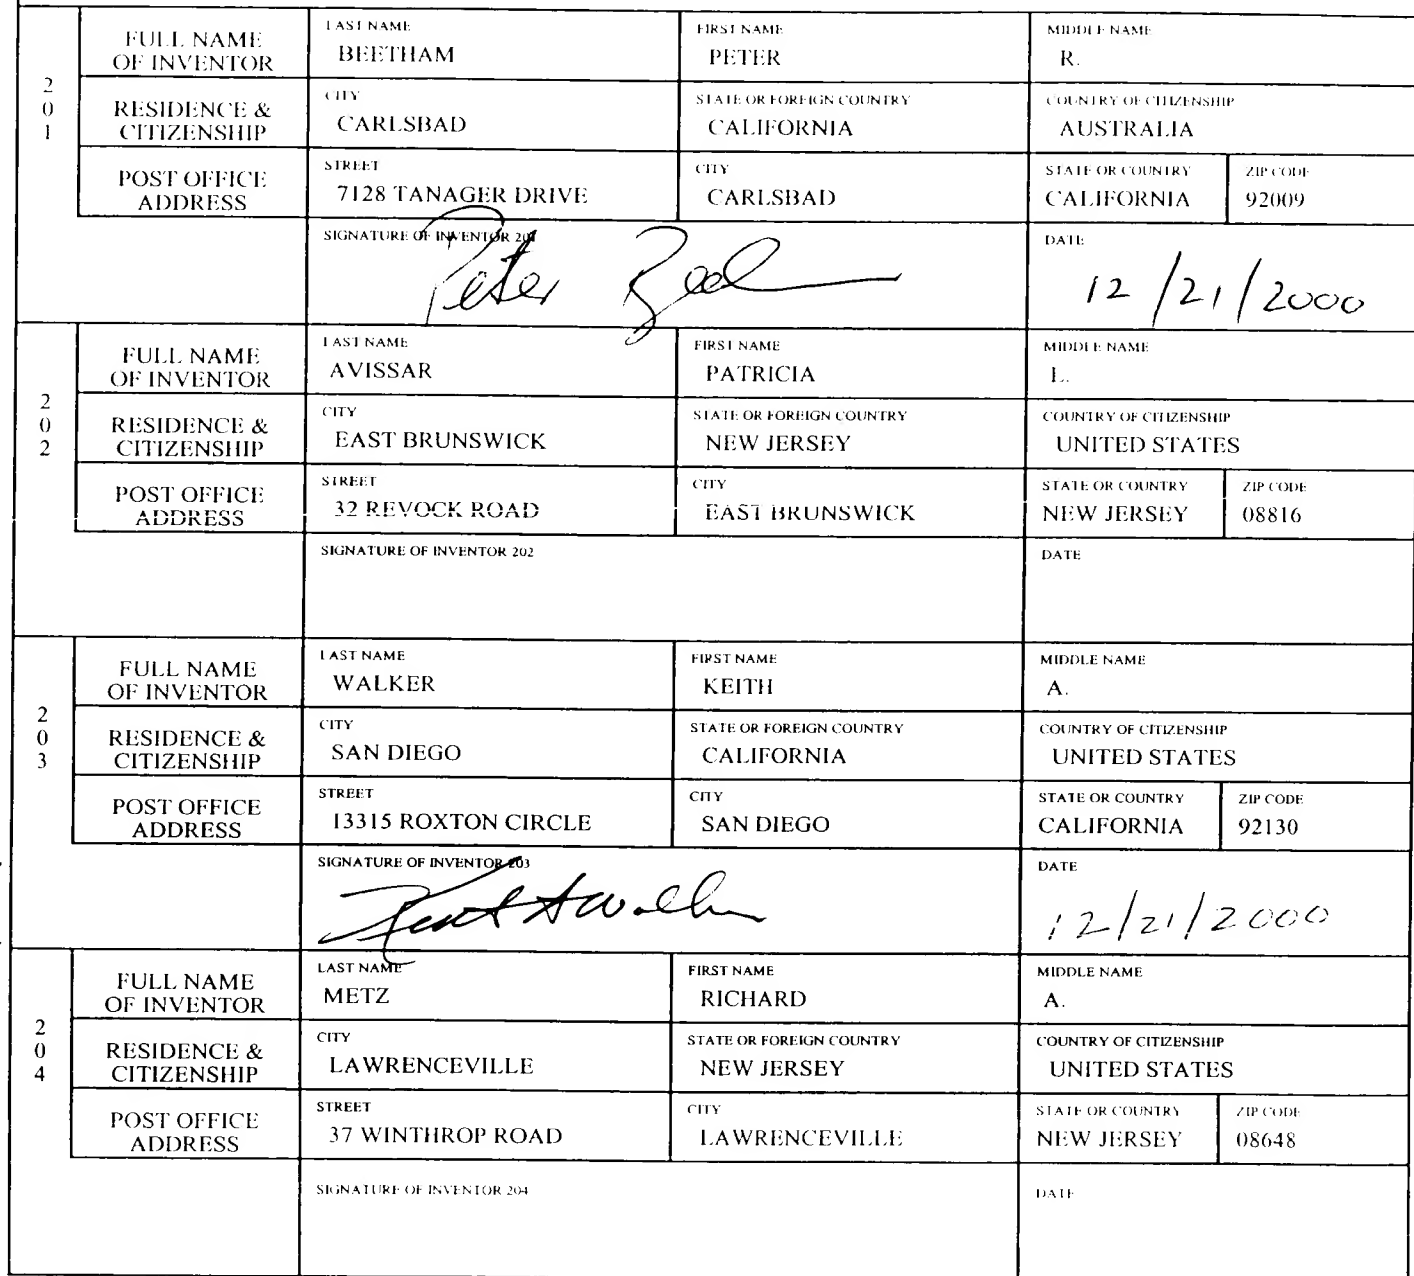 201
FULL NAME OF INVENTOR
LAST NAME BEETHAM
FIRST NAME PETER
MIDDLE NAME R.
RESIDENCE & CITIZENSHIP
CITY CARLSBAD
STATE OR FOREIGN COUNTRY CALIFORNIA
COUNTRY OF CITIZENSHIP AUSTRALIA
POST OFFICE ADDRESS
STREET 7128 TANAGER DRIVE
CITY CARLSBAD
STATE OR COUNTRY CALIFORNIA
ZIP CODE 92009
SIGNATURE OF INVENTOR 201
Peter
DATE 12/21/2000
202
FULL NAME OF INVENTOR
LAST NAME AVISSAR
FIRST NAME PATRICIA
MIDDLE NAME L.
RESIDENCE & CITIZENSHIP
CITY EAST BRUNSWICK
STATE OR FOREIGN COUNTRY NEW JERSEY
COUNTRY OF CITIZENSHIP UNITED STATES
POST OFFICE ADDRESS
STREET 32 REVOCK ROAD
CITY EAST BRUNSWICK
STATE OR COUNTRY NEW JERSEY
ZIP CODE 08816
SIGNATURE OF INVENTOR 202
DATE
203
FULL NAME OF INVENTOR
LAST NAME WALKER
FIRST NAME KEITH
MIDDLE NAME A.
RESIDENCE & CITIZENSHIP
CITY SAN DIEGO
STATE OR FOREIGN COUNTRY CALIFORNIA
COUNTRY OF CITIZENSHIP UNITED STATES
POST OFFICE ADDRESS
STREET 13315 ROXTON CIRCLE
CITY SAN DIEGO
STATE OR COUNTRY CALIFORNIA
ZIP CODE 92130
SIGNATURE OF INVENTOR 203
DATE 12/21/2000
204
FULL NAME OF INVENTOR
LAST NAME METZ
FIRST NAME RICHARD
MIDDLE NAME A.
RESIDENCE & CITIZENSHIP
CITY LAWRENCEVILLE
STATE OR FOREIGN COUNTRY NEW JERSEY
COUNTRY OF CITIZENSHIP UNITED STATES
POST OFFICE ADDRESS
STREET 37 WINTHROP ROAD
CITY LAWRENCEVILLE
STATE OR COUNTRY NEW JERSEY
ZIP CODE 08648
SIGNATURE OF INVENTOR 204
DATE